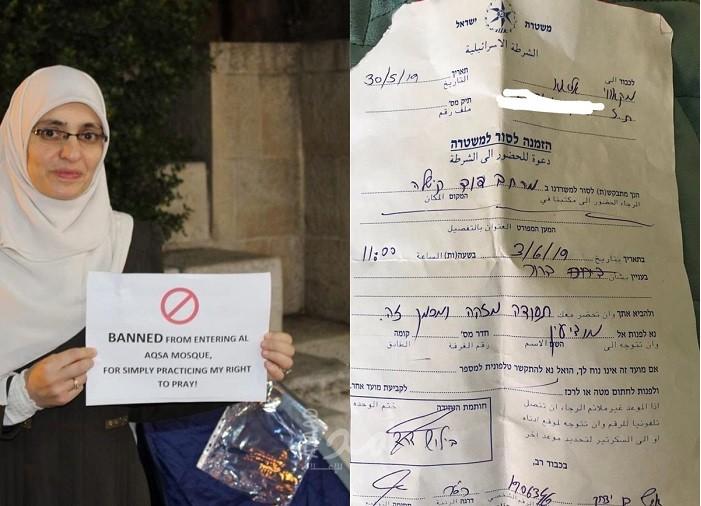 BANNED FROM ENTERING AL
AQSA MOSQUE,
FOR SIMPLY PRACTICING MY RIGHT
TO PRAY!
משטרת ישראל
الشرطة الاسرائيلية
לכבוד الى
תאריך التاريخ 30/5/19
תיק מס' ملف رقم
הזמנה לסור למשטרה
دعوة للحضور الى الشرطة
הנך מתבקש(ת) לסור למשרדנו ב
الرجاء الحضور الى مكتبنا في המקום المكان
המען המפורט العنوان بالتفصيل
בתאריך بتاريخ 3/6/19 בשעה(ות) الساعة 11:00
בעניין بشأن ברור
ולהביא אתך وان تحضر معك תעודה מזהה ומזמן זה.
נא לפנות אל מודיעין
وان تتوجه الى השם الاسم חדר מס' رقم الغرفة קומה الطابق
אם מועד זה אינו נוח לך, הואל נא להתקשר טלפונית למספר
ולפנות לחתום מטה או לרכז לקביעת מועד אחר.
اذا الموعد غير ملائم الرجاء ان تتصل
تلفونيا للرقم وان تتوجه لموقع ادناه
او الى السكرتير لتحديد موعد اخر
חותמת היחידה ختم الوحدة
בכבוד רב,
الرقم الشخصي
דרגה الرتبة